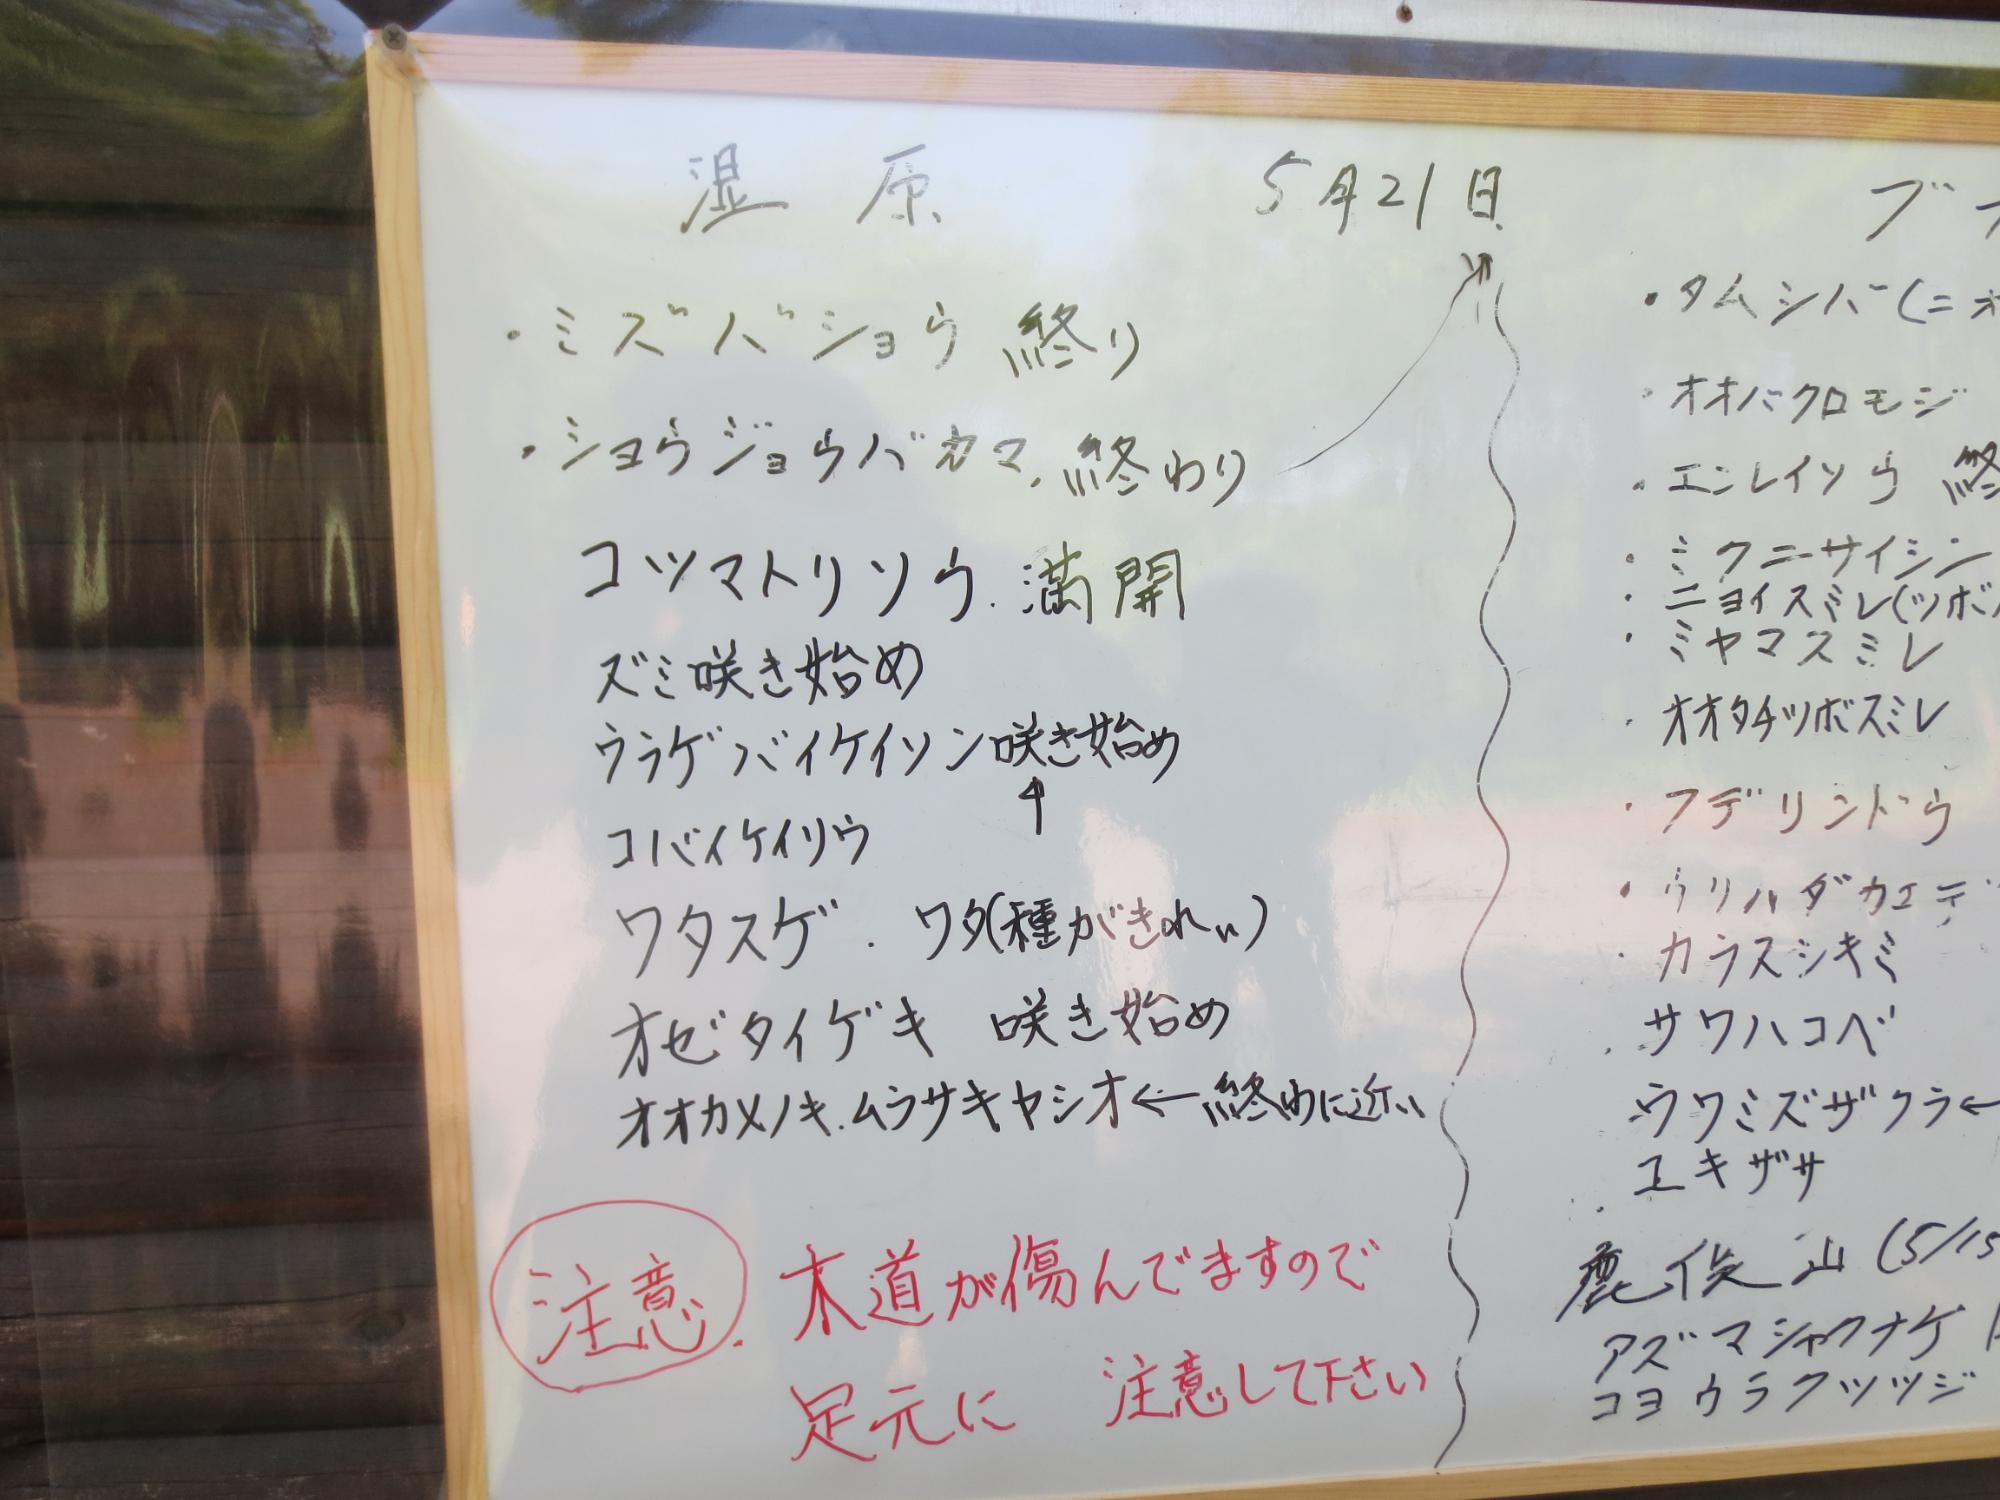 湿原 5月21日
・ミズバショウ 終り
・ショウジョウバカマ. 終わり
コツマトリソウ. 満開
ズミ咲き始め
ウラゲバイケイソン咲き始め
コバイケイソウ
ワタスゲ. ワタ(種がきれい)
オゼタイゲキ 咲き始め
オオカメノキ.ムラサキヤシオ←終わに近い
注意. 木道が傷んでますので
足元に 注意して下さい
ブナ
・タムシバ(ニオ
・オオバクロモジ
・エンレイソウ 終
・ミクニサイシン
・ニョイスミレ(ツボ
・ミヤマスミレ
・オオタチツボスミレ
・フデリンドウ
・ウリハダカエデ
・カラスシキミ
・サワハコベ
ウワミズザクラ←
ユキザサ
鹿俣山(5/15
アズマシャクナゲ
コヨウラクツツジ